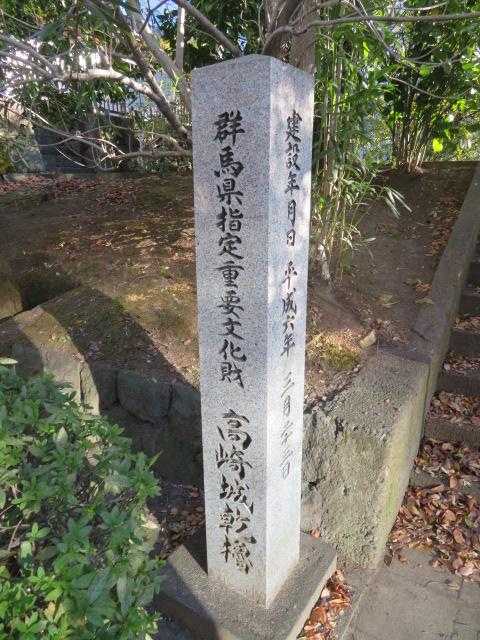 群馬県指定重要文化財 高崎城乾櫓
建設年月日 平成六年 三月